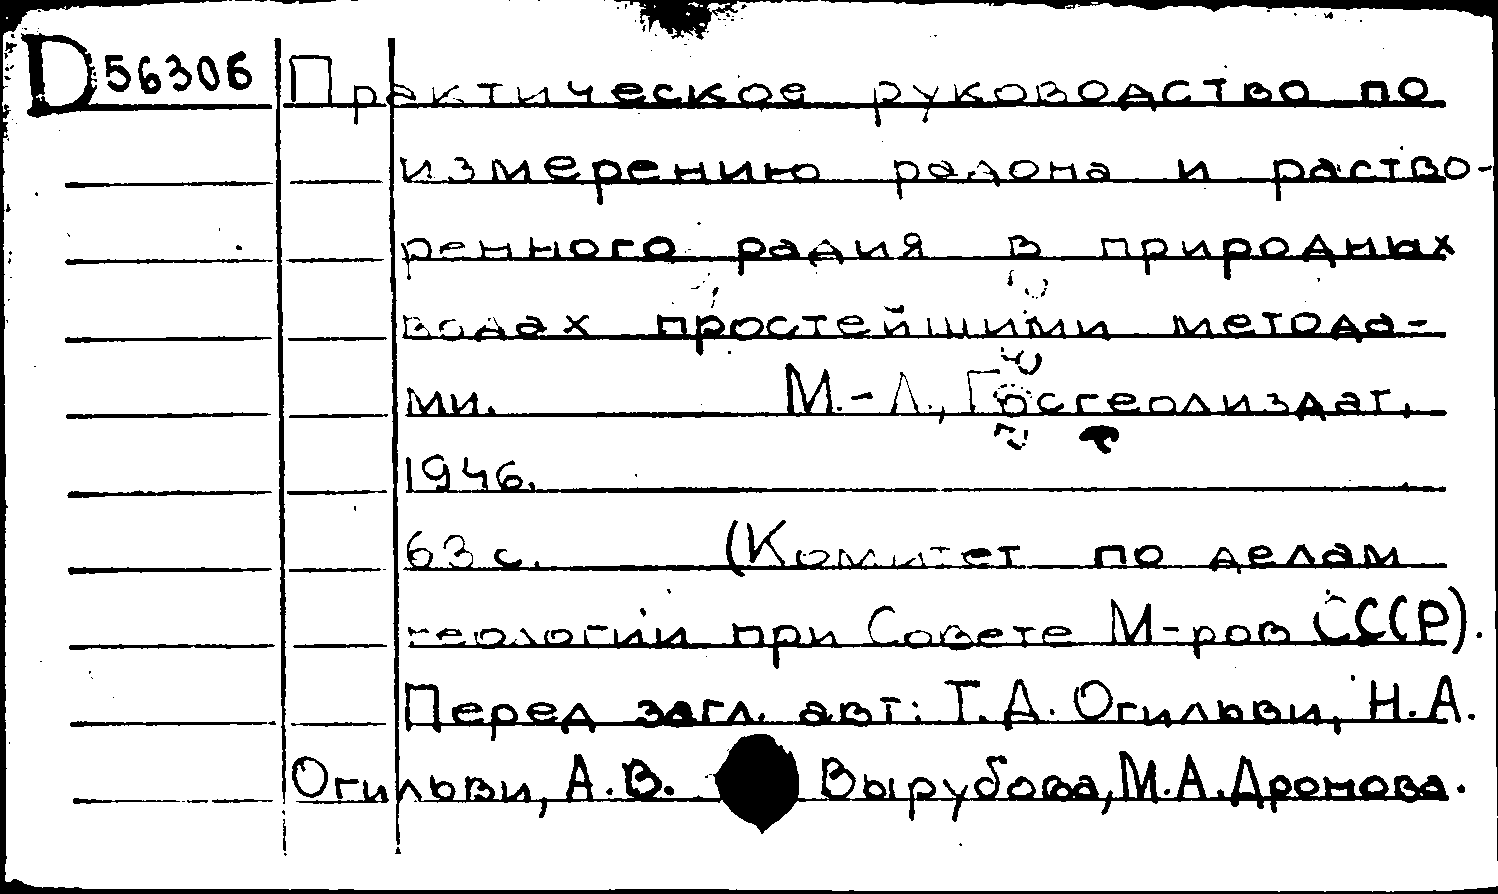 D 56306 Практическое руководство по
измерению радона и раство-
ренного радия в природных
водах простейшими метода-
ми. М.-Л., Госгеолиздат,
1946.
63 с. (Комитет по делам
геологии при Совете М-ров СССР).
Перед загл. авт: Т.Д. Огильви, Н.А.
Огильви, А.В. Вырубова, М.А. Дромова.